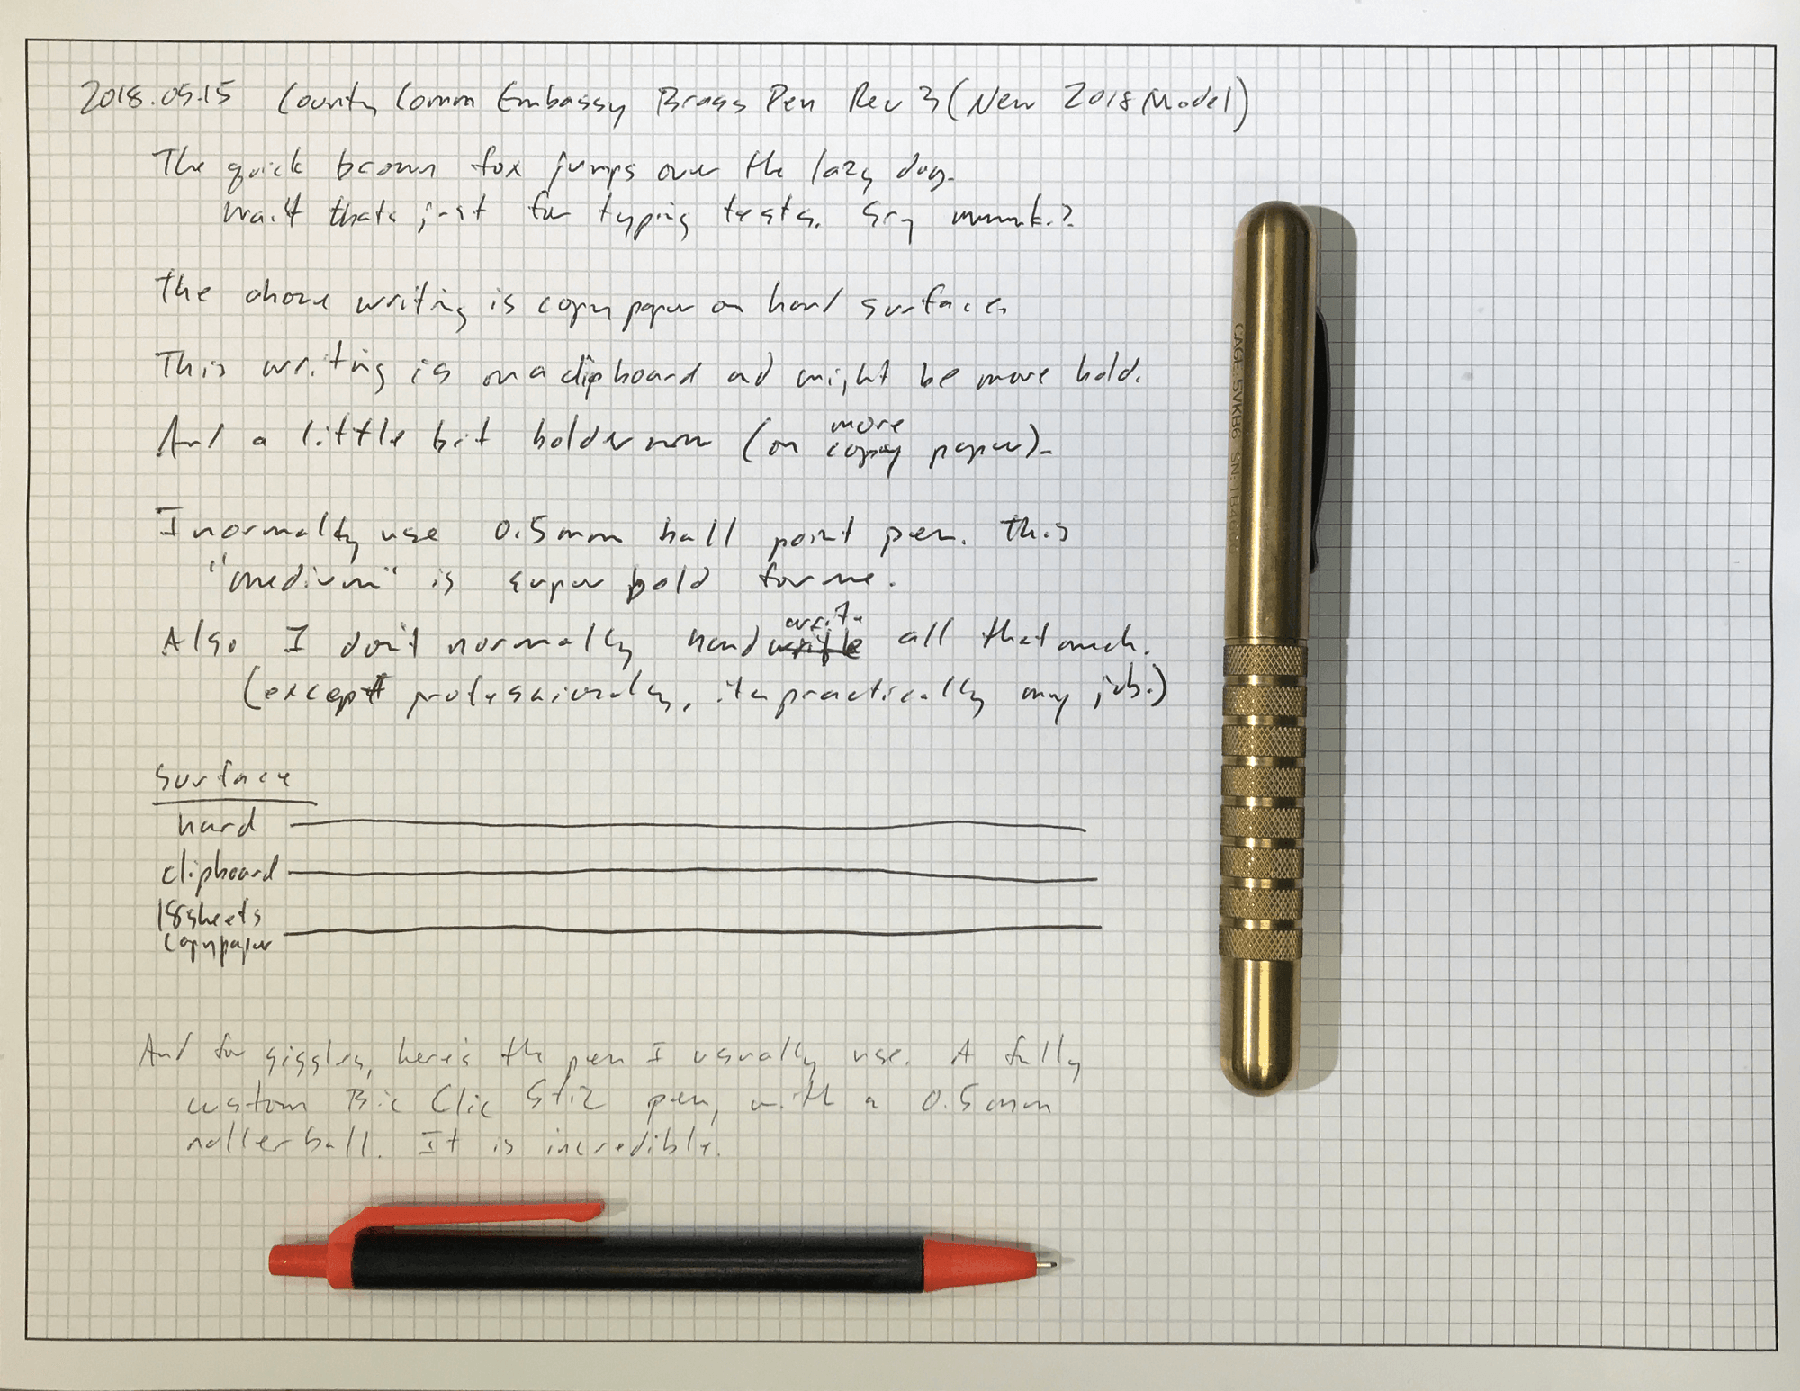 2018.05.15 County Comm Embassy Brass Pen Rev 3 (New 2018 Model)
The quick brown fox jumps over the lazy dog.
Wait thats just for typing tests.
The above writing is copy paper on hard surface.
This writing is on a clipboard and might be more bold.
And a little bit bolder now (on more copy paper).
I normally use 0.5mm ball point pen. This
"medium" is super bold for me.
Also I don't normally hand write all that much.
(except professionally, its practically my job.)
Surface
hard
clipboard
18 sheets
copy paper
And for giggles, here's the pen I usually use. A fully
custom Bic Clic Stic pen, with a 0.5mm
rollerball. It is incredible.
CAGE: 5VKB6 SN: